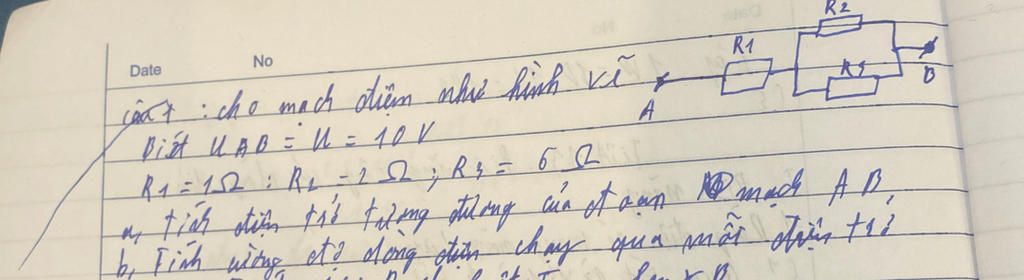 R2
R1
R3
A
B
Date No
câu 1 : cho mạch điện như hình vẽ
Biết UAB = U = 10 V
R1 = 1Ω ; R2 = 2 Ω ; R3 = 6 Ω
a, tích điện trở tương đương của đoạn mạch AB,
b, Tính cường độ dòng điện chạy qua mỗi điện trở